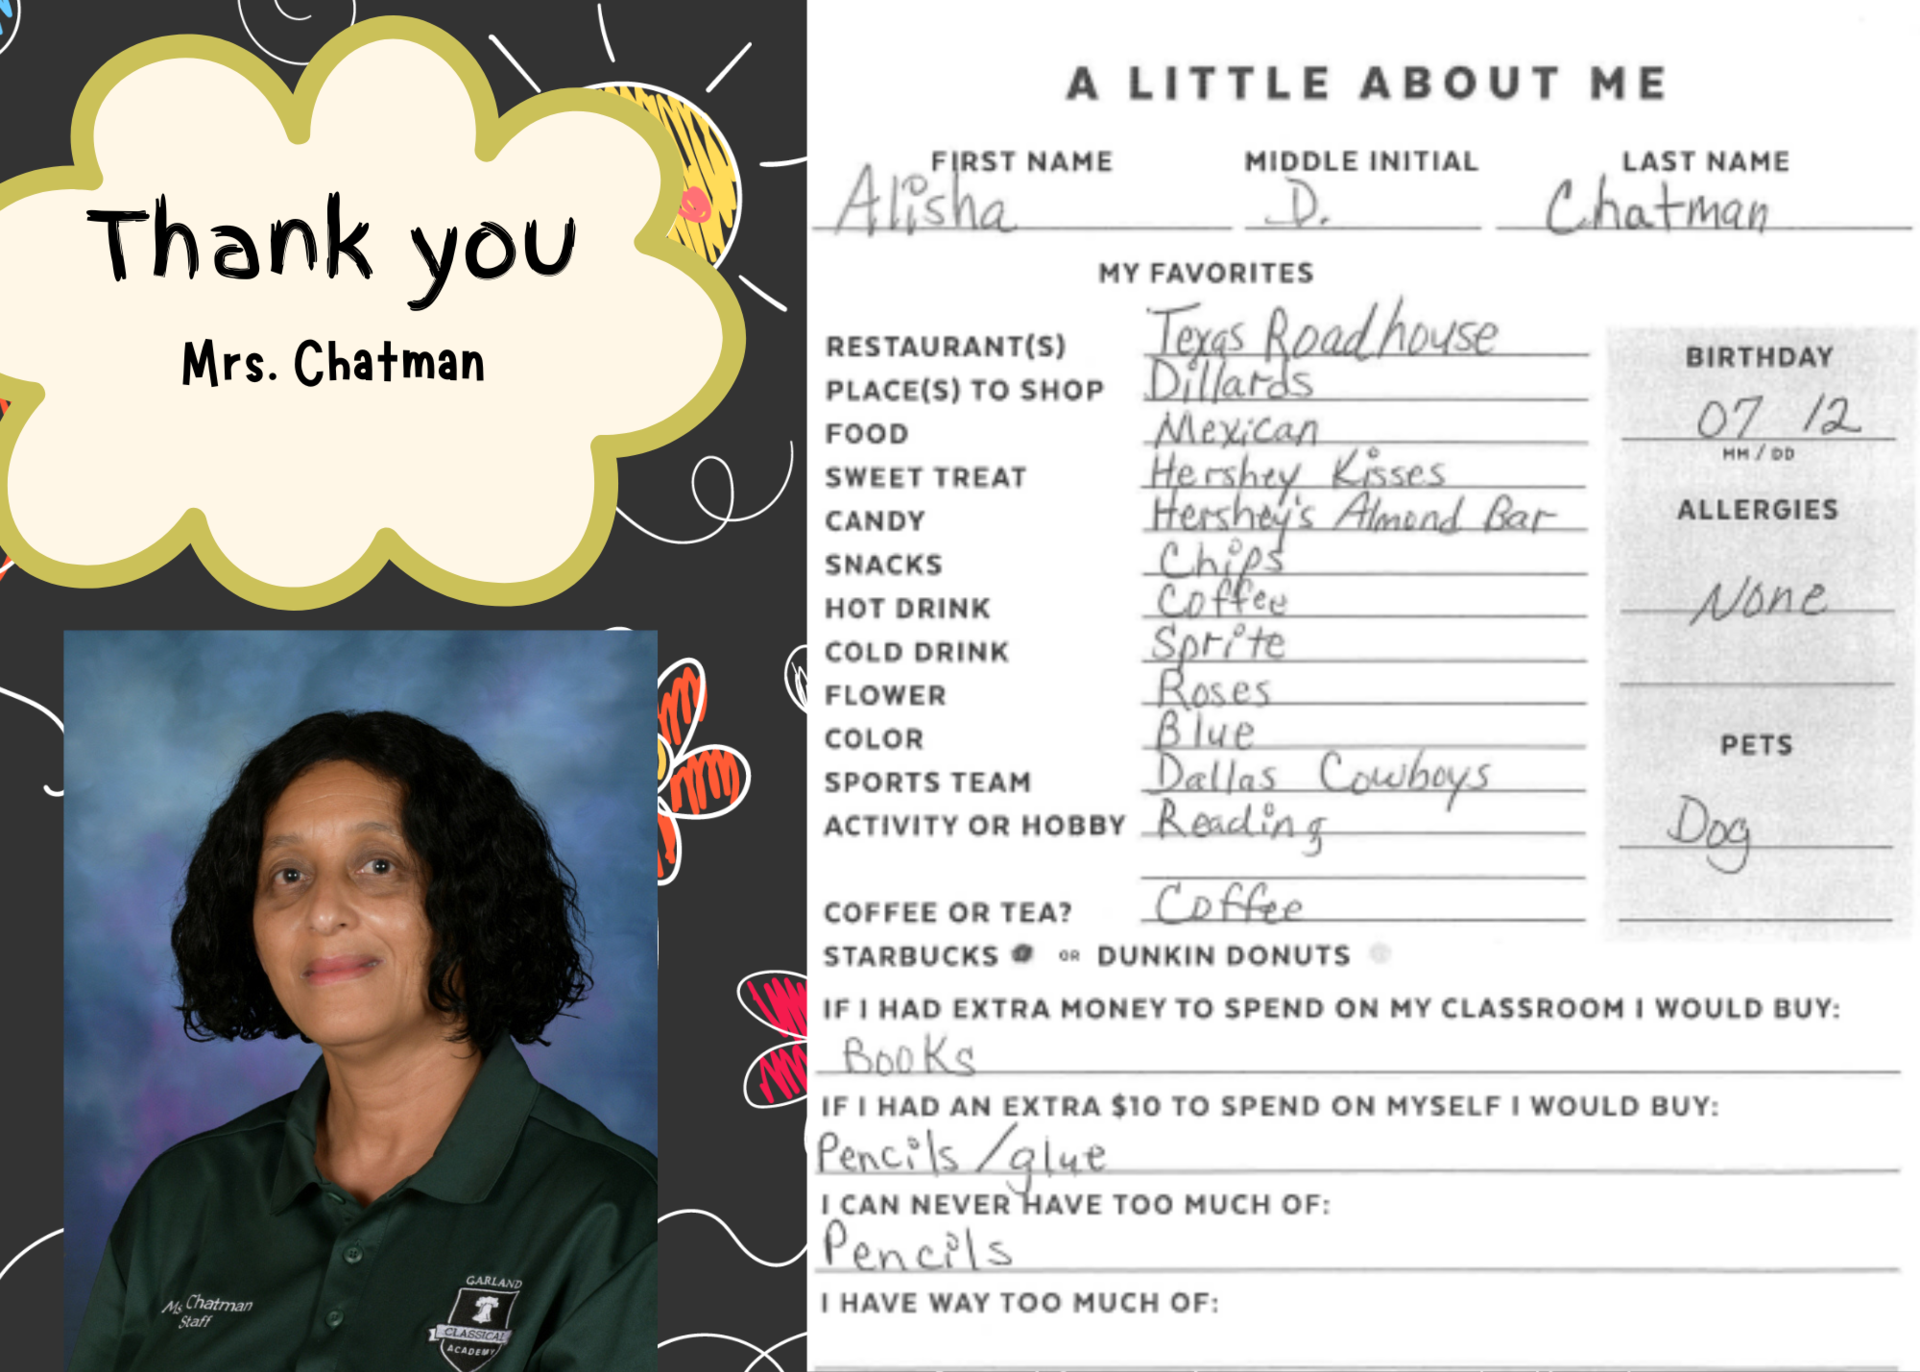 Thank you
Mrs. Chatman
Ms. Chatman
Staff
GARLAND
CLASSICAL
ACADEMY
A LITTLE ABOUT ME
FIRST NAME MIDDLE INITIAL LAST NAME
Alisha D. Chatman
MY FAVORITES
RESTAURANT(S) Texas Roadhouse
PLACE(S) TO SHOP Dillards
FOOD Mexican
SWEET TREAT Hershey Kisses
CANDY Hershey's Almond Bar
SNACKS Chips
HOT DRINK Coffee
COLD DRINK Sprite
FLOWER Roses
COLOR Blue
SPORTS TEAM Dallas Cowboys
ACTIVITY OR HOBBY Reading
COFFEE OR TEA? Coffee
STARBUCKS OR DUNKIN DONUTS
BIRTHDAY
07 12
MM / DD
ALLERGIES
None
PETS
Dog
IF I HAD EXTRA MONEY TO SPEND ON MY CLASSROOM I WOULD BUY:
Books
IF I HAD AN EXTRA $10 TO SPEND ON MYSELF I WOULD BUY:
Pencils/glue
I CAN NEVER HAVE TOO MUCH OF:
Pencils
I HAVE WAY TOO MUCH OF: